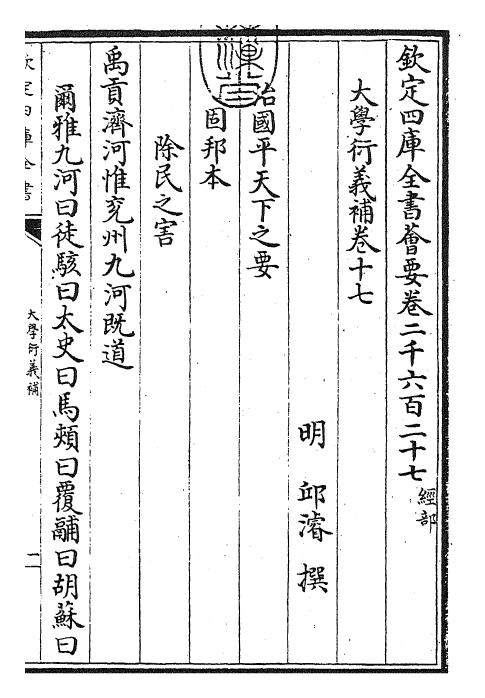 欽定四庫全書薈要卷二千六百二十七 經部
大學衍義補卷十七
明 邱濬 撰
治國平天下之要
固邦本
除民之害
禹貢濟河惟兖州九河既道
爾雅九河曰徒駭曰太史曰馬頰曰覆鬴曰胡蘇曰
欽定四庫全書
大學衍義補